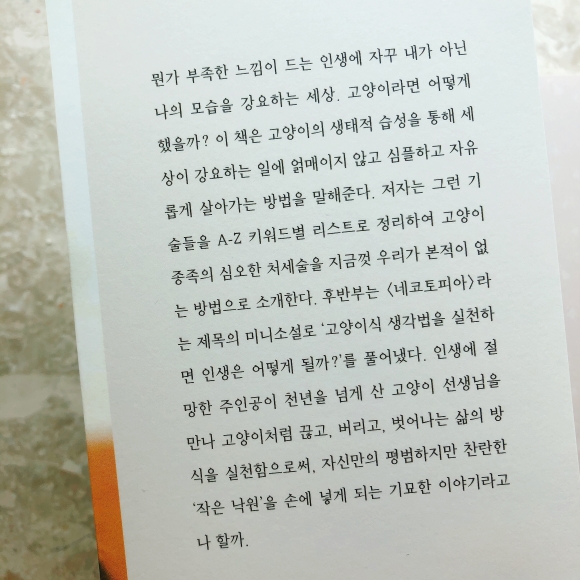 뭔가 부족한 느낌이 드는 인생에 자꾸 내가 아닌
나의 모습을 강요하는 세상. 고양이라면 어떻게
했을까? 이 책은 고양이의 생태적 습성을 통해 세
상이 강요하는 일에 얽매이지 않고 심플하고 자유
롭게 살아가는 방법을 말해준다. 저자는 그런 기
술들을 A-Z 키워드별 리스트로 정리하여 고양이
종족의 심오한 처세술을 지금껏 우리가 본적이 없
는 방법으로 소개한다. 후반부는 〈네코토피아〉라
는 제목의 미니소설로 ‘고양이식 생각법을 실천하
면 인생은 어떻게 될까?’를 풀어냈다. 인생에 절
망한 주인공이 천년을 넘게 산 고양이 선생님을
만나 고양이처럼 끊고, 버리고, 벗어나는 삶의 방
식을 실천함으로써, 자신만의 평범하지만 찬란한
‘작은 낙원’을 손에 넣게 되는 기묘한 이야기라고
나 할까.